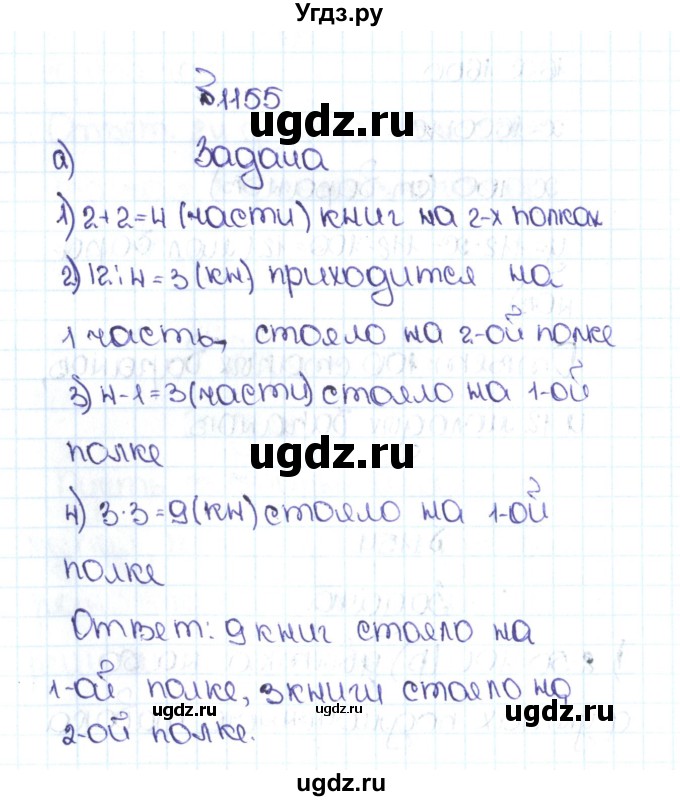 Угдз.ру
№1155
ugdz.ru
а) Задача
1) 2+2=4 (части) книг на 2-х полках
2) 12:4=3 (кн) приходится на
ugdz.ru
1 часть, стояло на 2-ой полке
3) 4-1=3 (части) стояло на 1-ой
полке
ugdz.ru
4) 3·3=9 (кн) стояло на 1-ой
полке
ugdz.ru
Ответ: 9 книг стояло на
1-ой полке, 3 книги стояло на
ugdz.ru ugdz.ru ugdz.ru
2-ой полке.
ugdz.ru